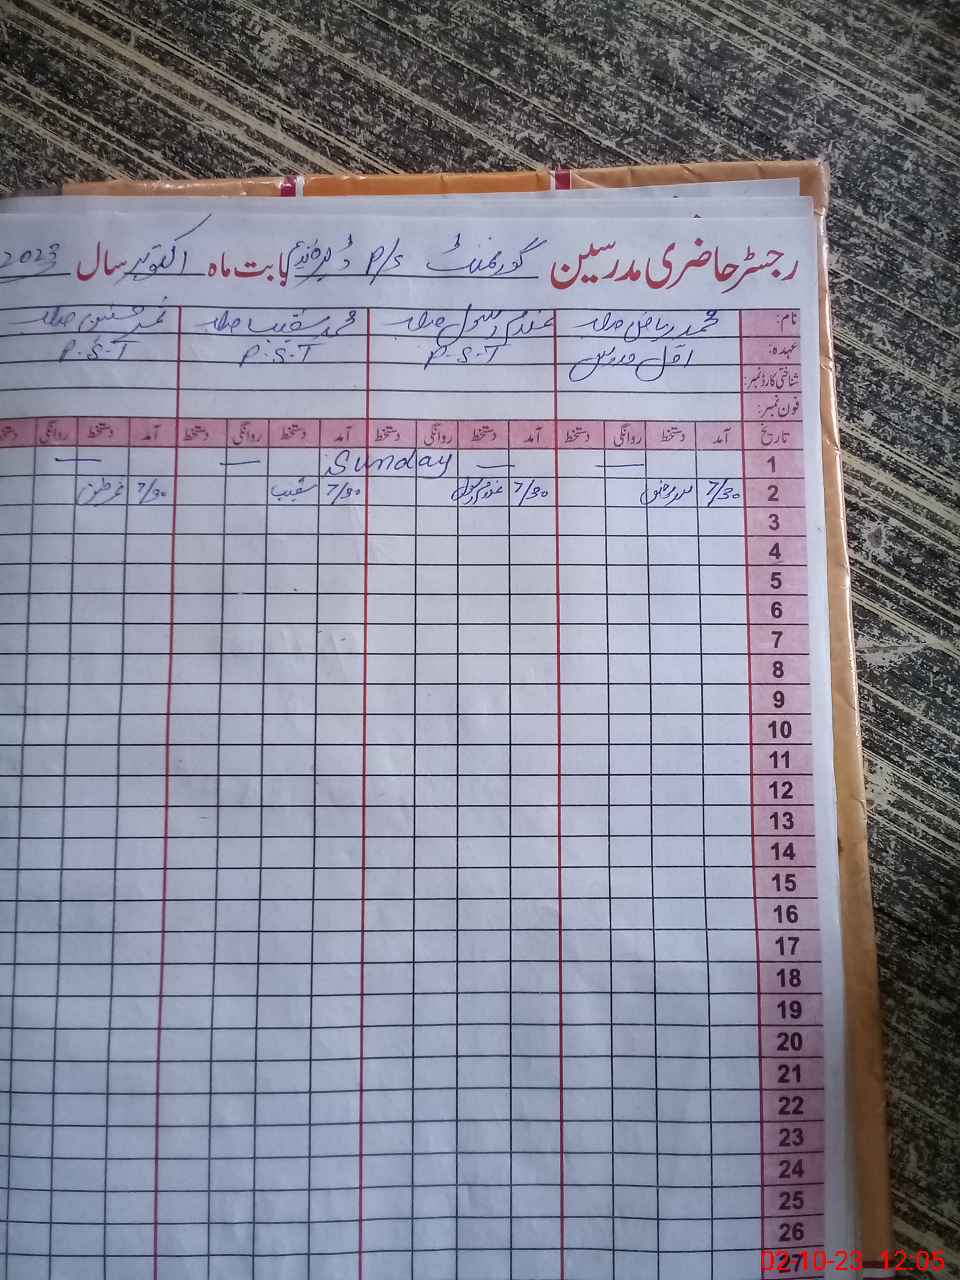 رجسٹر حاضری مدرسین گورنمنٹ P/S بابت ماہ اکتوبر سال 2023
نام: محمد ریاض غلام رسول محمد شعیب
عہدہ: اول مدرس P.S.T P.S.T P.S.T
شناختی کارڈ نمبر:
فون نمبر:
تاریخ آمد دستخط روانگی دستخط آمد دستخط روانگی دستخط آمد دستخط روانگی دستخط آمد دستخط روانگی دستخط
1 — — Sunday — —
2 7/30 7/30 7/30 شعیب 7/30
3
4
5
6
7
8
9
10
11
12
13
14
15
16
17
18
19
20
21
22
23
24
25
26
27
02-10-23 12:05